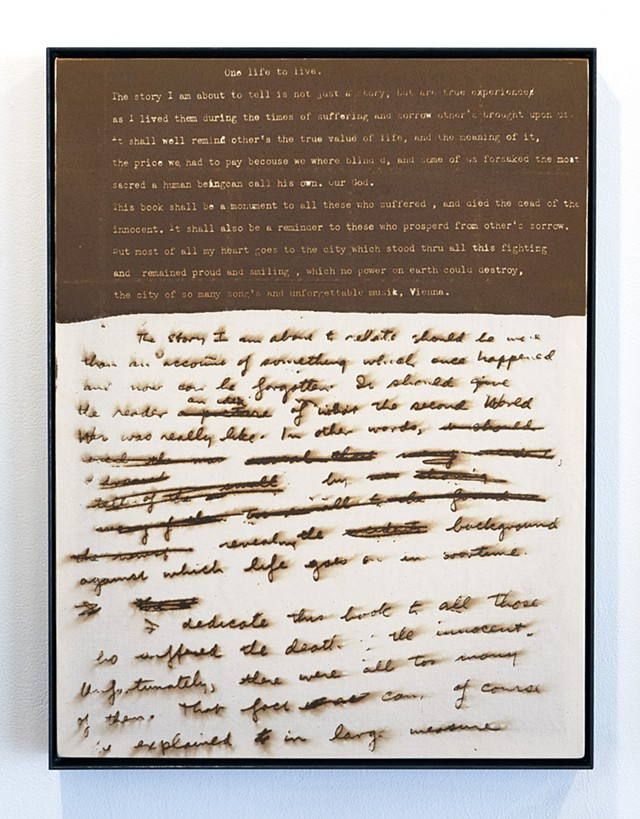 One life to live.
The story I am about to tell is not just a story, but are true experiences
as I lived them during the times of suffering and sorrow other's brought upon us.
It shall well remind other's the true value of life, and the meaning of it,
the price we had to pay becouse we where blind d, and some of us forsaked the most
sacred a human beingcan call his own. Our God.
This book shall be a monument to all these who suffered , and died the dead of the
innocent. It shall also be a reminder to these who prosperd from other's sorrow.
But most of all my heart goes to the city which stood thru all this fighting
and remained proud and smiling , which no power on earth could destroy,
the city of so many song's and unforgettable musik, Vienna.
The story I am about to relate should be more
than an account of something which once happened
and now can be forgotten. It should give
the reader an idea of what the second World
War was really like. In other words, it should
by
revealing the background
against which life goes on in wartime.
I dedicate this book to all those
who suffered the death of the innocent.
Unfortunately, there were all too many
of them. That fact can, of course
be explained in large measure